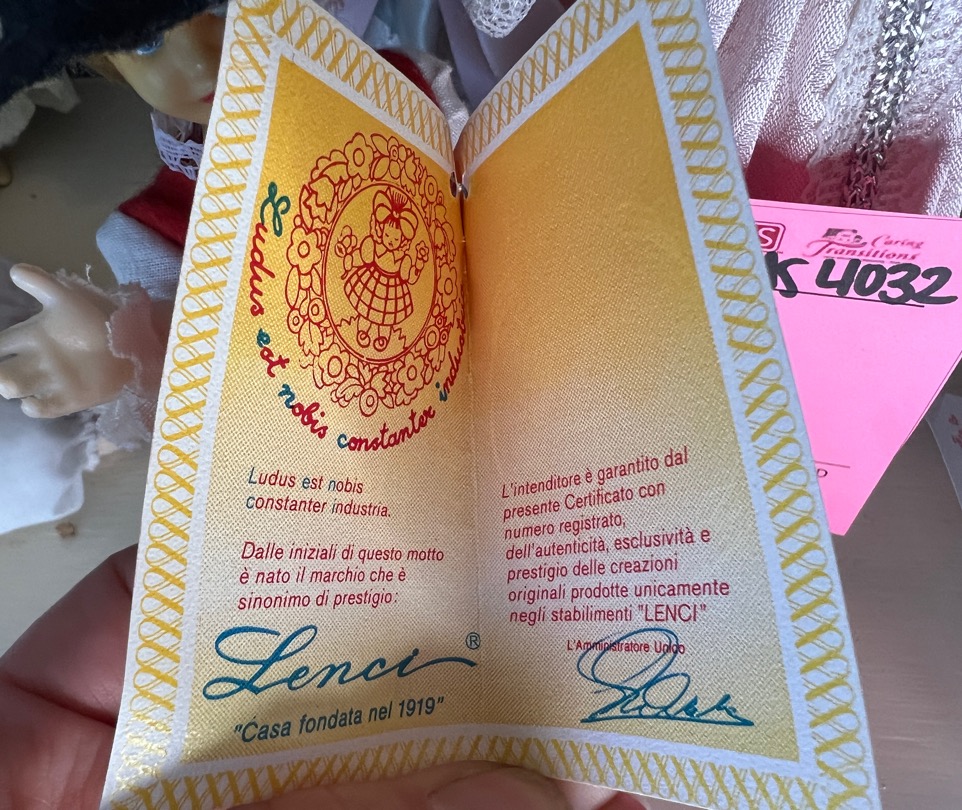 Ludus est nobis constanter
Ludus est nobis
constanter industria.
Dalle iniziali di questo motto
è nato il marchio che è
sinonimo di prestigio:
Lenci®
"Casa fondata nel 1919"
L'intenditore è garantito dal
presente Certificato con
numero registrato,
dell'autenticità, esclusività e
prestigio delle creazioni
originali prodotte unicamente
negli stabilimenti "LENCI"
L'Amministratore Unico
S
Caring
Transitions
4032